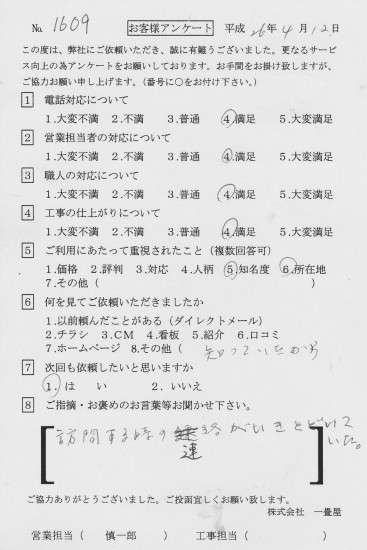 No. 1609 お客様アンケート 平成 26年 4月 12日
この度は、弊社にご依頼いただき、誠に有難うございました。更なるサービ
ス向上の為アンケートをお願いしております。お手間をお掛け致しますが、
ご協力お願い申し上げます。(番号に○をお付け下さい。)
1 電話対応について
1.大変不満 2.不満 3.普通 4.満足 5.大変満足
2 営業担当者の対応について
1.大変不満 2.不満 3.普通 4.満足 5.大変満足
3 職人の対応について
1.大変不満 2.不満 3.普通 4.満足 5.大変満足
4 工事の仕上がりについて
1.大変不満 2.不満 3.普通 4.満足 5.大変満足
5 ご利用にあたって重視されたこと(複数回答可)
1.価格 2.評判 3.対応 4.人柄 5.知名度 6.所在地
7.その他( )
6 何を見てご依頼いただきましたか
1.以前頼んだことがある(ダイレクトメール)
2.チラシ 3.CM 4.看板 5.紹介 6.口コミ
7.ホームページ 8.その他( 知っていたから
7 次回も依頼したいと思いますか
1.はい 2.いいえ
8 ご指摘・お褒めのお言葉等お聞かせ下さい。
訪問する時の連絡がいきとどいて
いた。
ご協力ありがとうございました。ご投函宜しくお願い致します。
株式会社 一畳屋
営業担当( 慎一郎 ) 工事担当( )